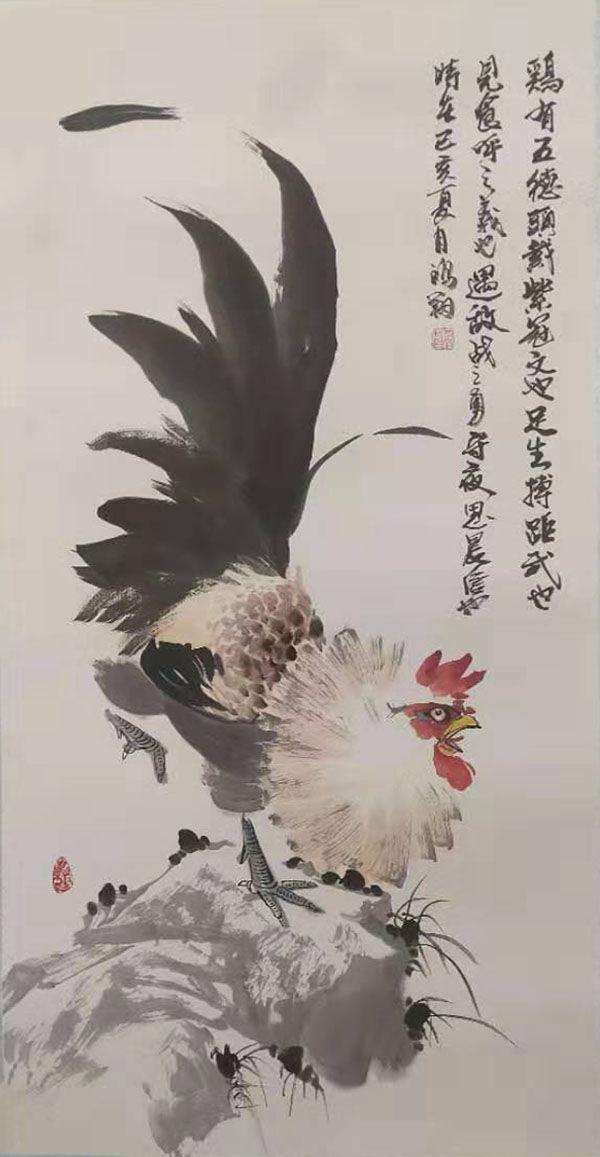 鶏有五德頭戴紫冠文也足生搏距武也
見食呼之義也遇敌战之勇守夜思晨信也
時在己亥夏月